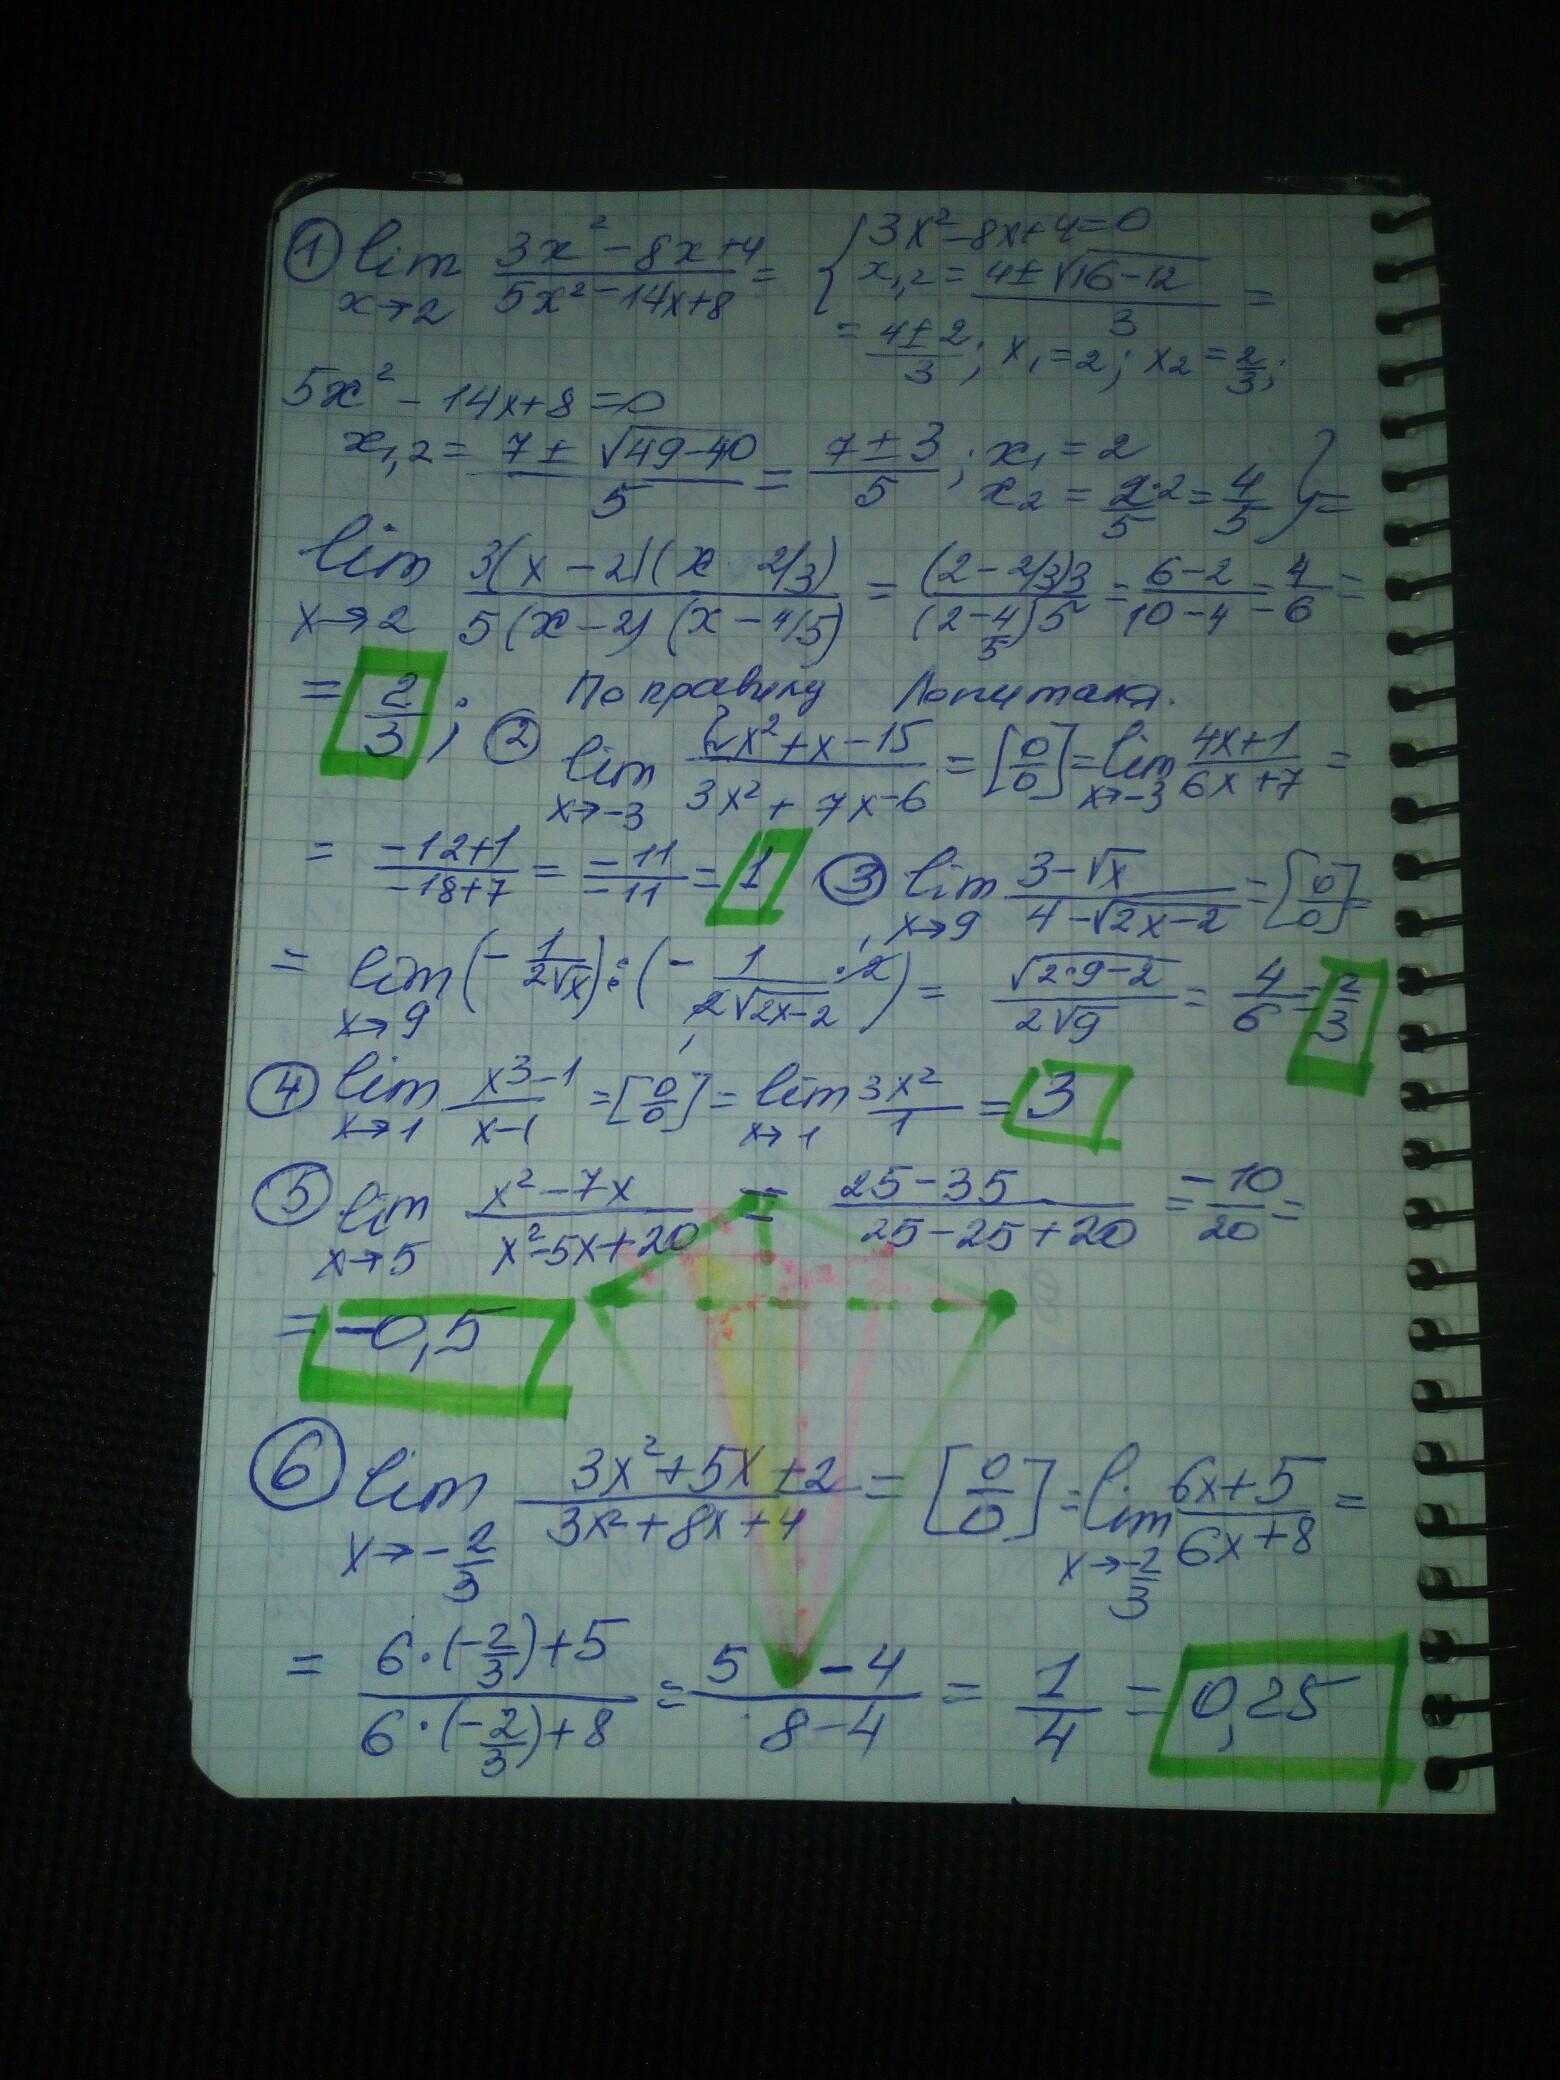 ① lim x→2 (3x²-8x+4)/(5x²-14x+8) = { 3x²-8x+4=0
x₁,₂ = (4±√(16-12))/3 =
= (4±2)/3; x₁=2; x₂=2/3;
5x²-14x+8=0
x₁,₂ = (7±√(49-40))/5 = (7±3)/5; x₁=2
x₂ = (2·2)/5 = 4/5 } =
lim x→2 3(x-2)(x 2/3)/5(x-2)(x-4/5) = (2-2/3)3/(2-4/5)5 = (6-2)/(10-4) = 4/6 =
= 2/3; По правилу Лопиталя.
② lim x→-3 (2x²+x-15)/(3x²+7x-6) = [0/0] = lim x→-3 (4x+1)/(6x+7) =
= (-12+1)/(-18+7) = -11/-11 = 1
③ lim x→9 (3-√x)/(4-√(2x-2)) = [0/0] =
= lim x→9 (-1/(2√x)) : (-1/(2√(2x-2))·2) = √(2·9-2)/(2√9) = 4/6 = 2/3
④ lim x→1 (x³-1)/(x-1) = [0/0] = lim x→1 3x²/1 = 3
⑤ lim x→5 (x²-7x)/(x²-5x+20) = (25-35)/(25-25+20) = -10/20 =
= -0,5
⑥ lim x→-2/3 (3x²+5x+2)/(3x²+8x+4) = [0/0] = lim x→-2/3 (6x+5)/(6x+8) =
= (6·(-2/3)+5)/(6·(-2/3)+8) = (5-4)/(8-4) = 1/4 = 0,25